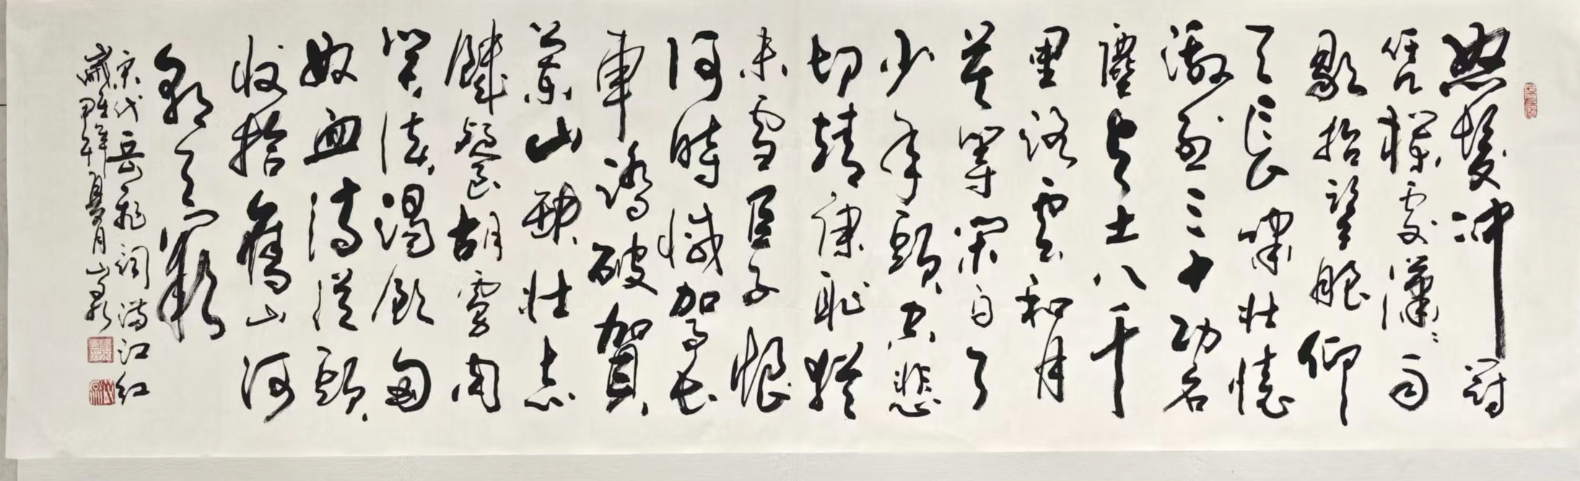 怒髮冲冠
凭欄處瀟〻雨
歇抬望眼仰
天長嘯壯懷
激烈三十功名
塵與土八千
里路雲和月
莫等閑白了
少年頭空悲
切靖康耻猶
未雪臣子恨
何時憾駕長
車踏破賀
蘭山缺壯志
飢餐胡虜肉
笑談渴飲匈
奴血待從頭
收拾舊山河
朝天闕
宋代岳飛詞滿江紅
歲甲午夏月